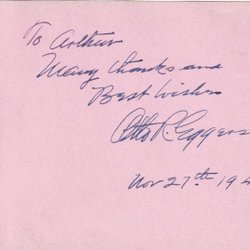 To Arthur
Many thanks and
Best Wishes
Otto R. Eggers
Nov 27th 194